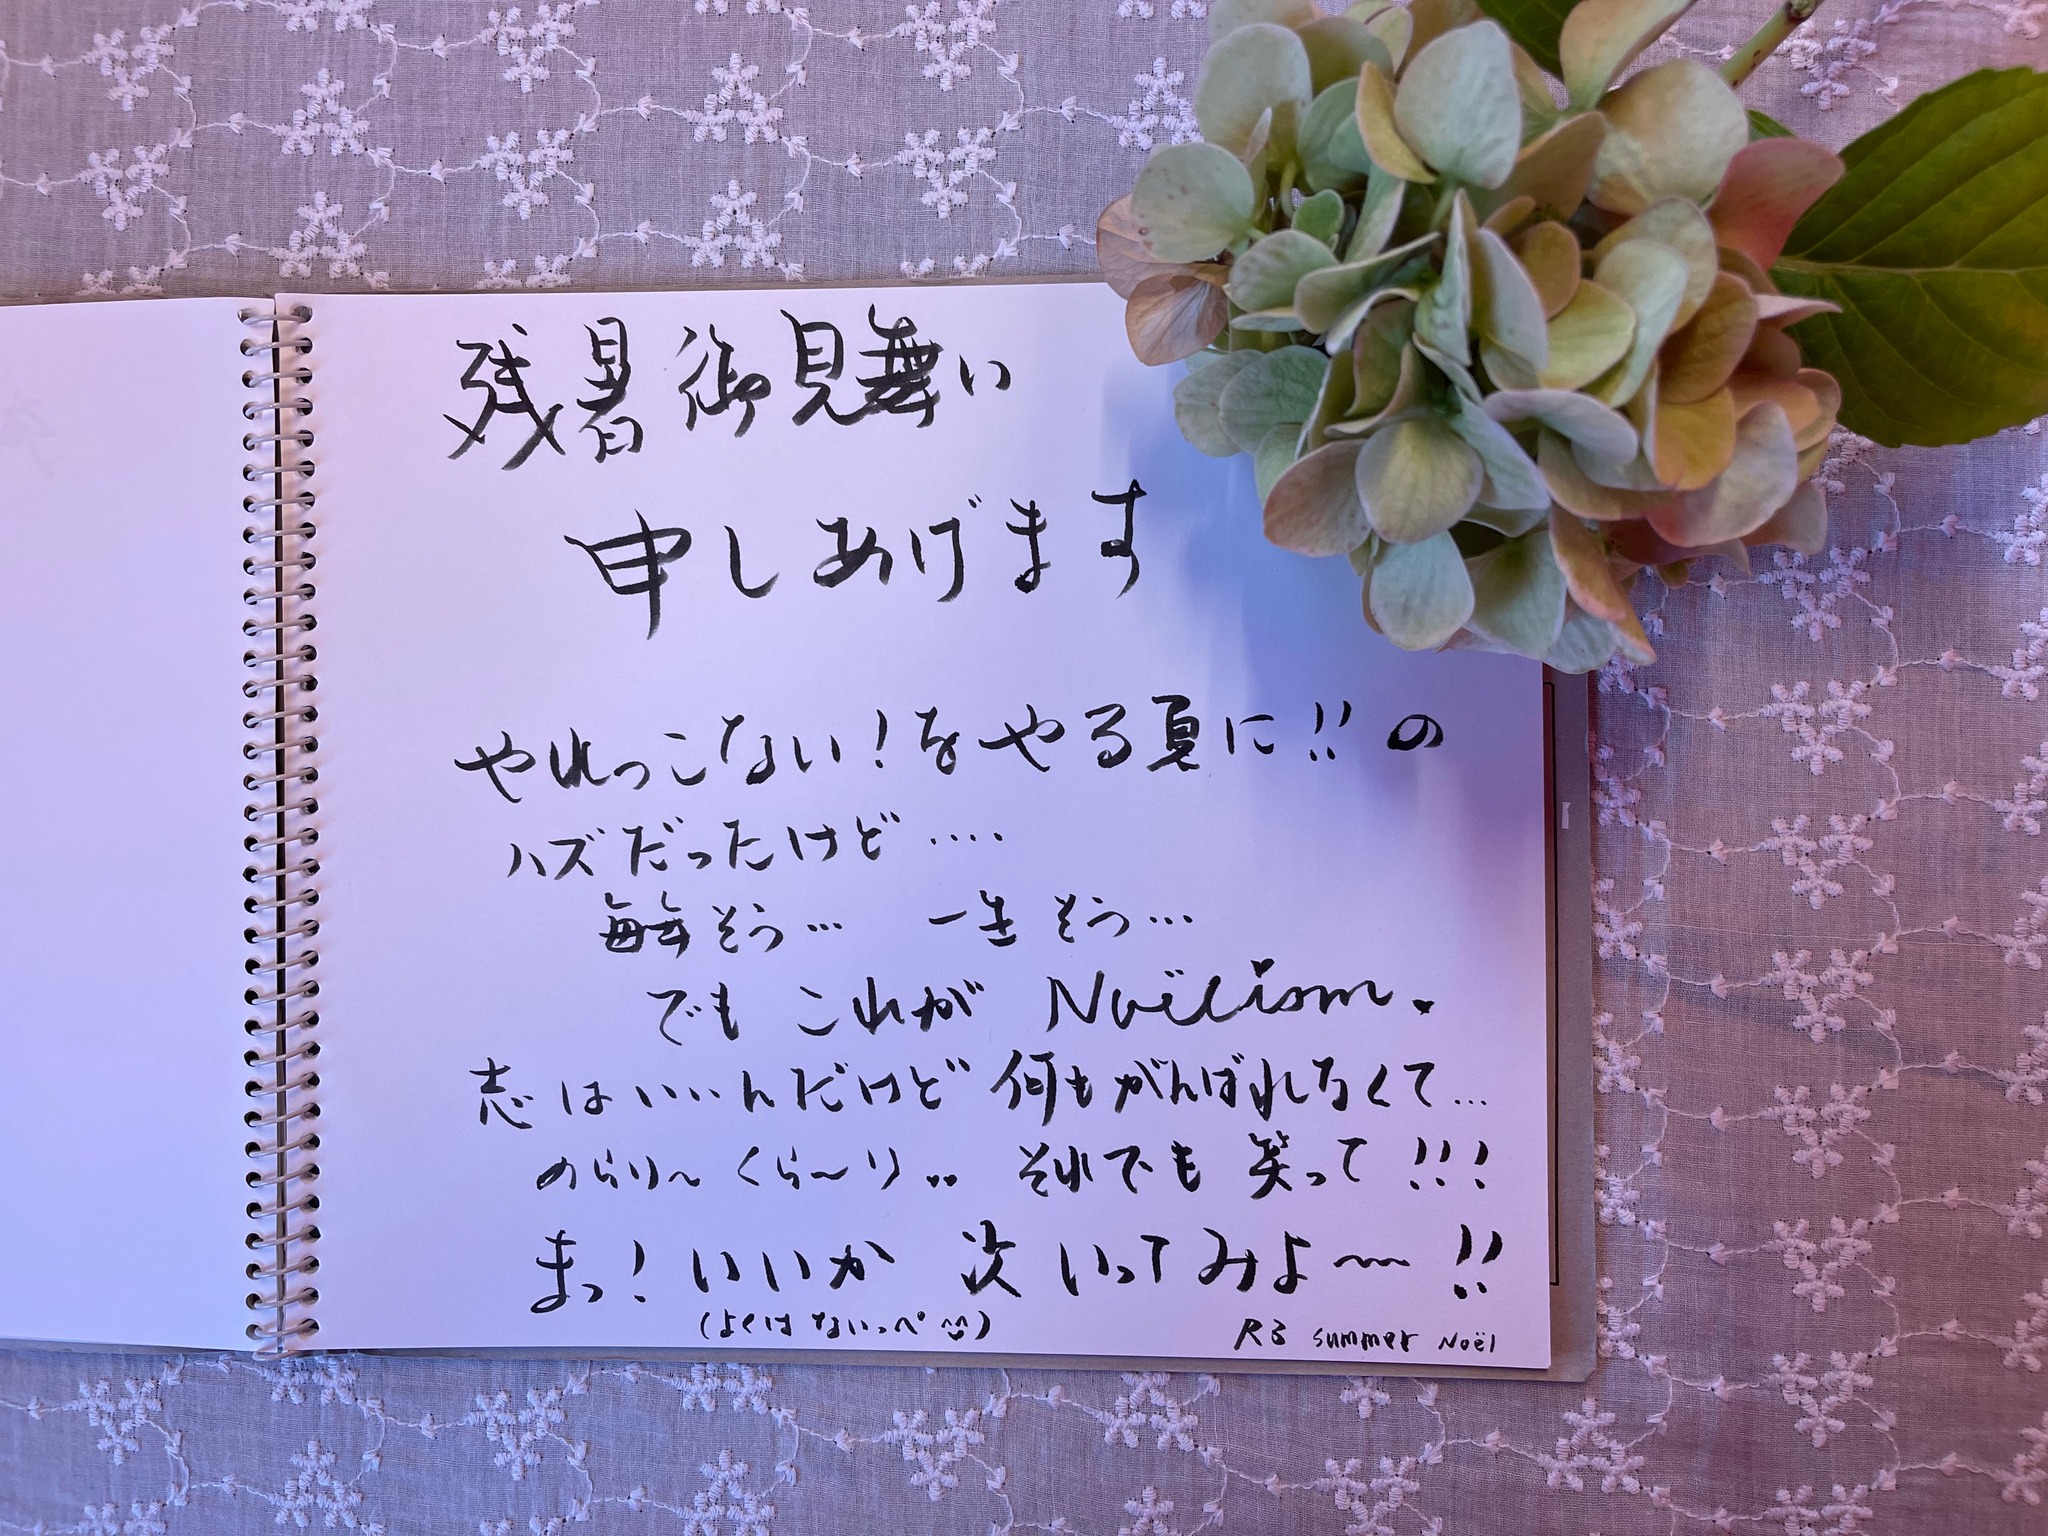 残暑御見舞い
申しあげます
やれっこない！をやる夏に!! の
ハズだったけど....
毎年そう… 一生そう…
でも これが Noëlism.
志はいいんだけど 何もがんばれなくて…
のらり〜くら〜り.. それでも 笑って!!!
まっ！いいか 次いってみよ〜!!
(よくはないっぺ)
R3 summer Noël